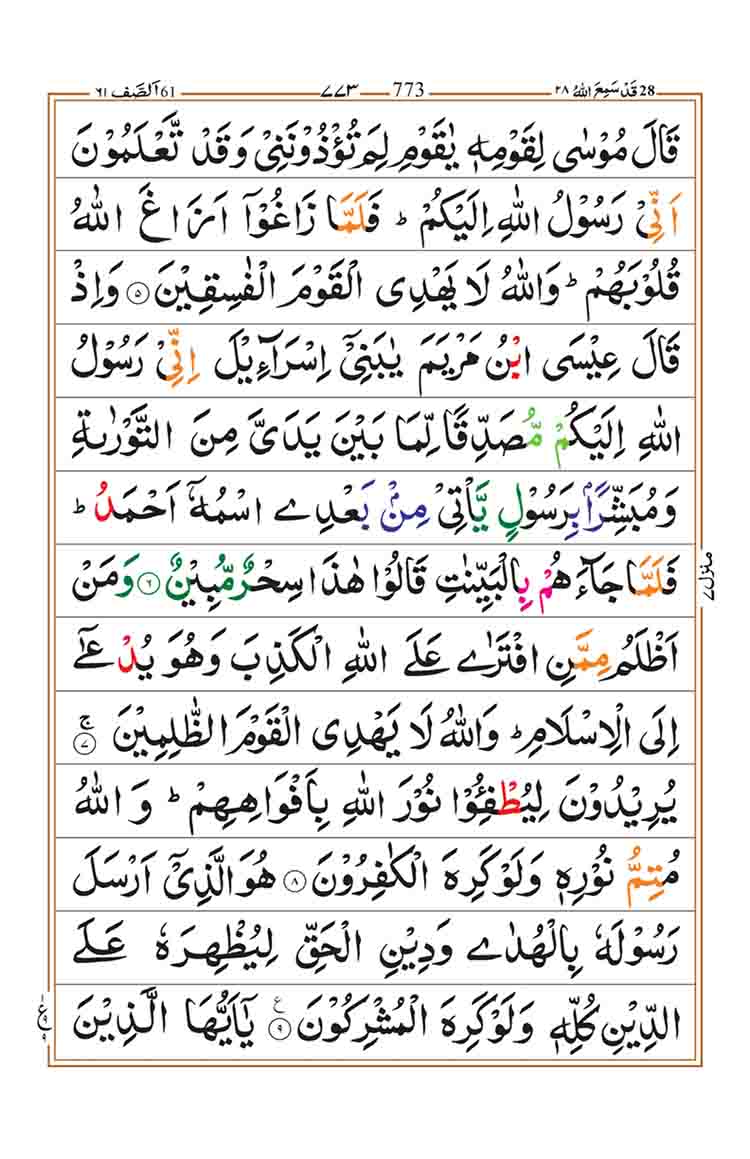 28 قَدْ سَمِعَ اللهُ ٢٨ 773 ٧٧٣ 61 اَلصَّف ٦١
قَالَ مُوْسٰى لِقَوْمِهٖ يٰقَوْمِ لِمَ تُؤْذُوْنَنِىْ وَقَدْ تَّعْلَمُوْنَ
اَنِّىْ رَسُوْلُ اللهِ اِلَيْكُمْ ؕ فَلَمَّا زَاغُوْۤا اَزَاغَ اللهُ
قُلُوْبَهُمْ ؕ وَاللهُ لَا يَهْدِى الْقَوْمَ الْفٰسِقِيْنَ ۝٥ وَاِذْ
قَالَ عِيْسَى ابْنُ مَرْيَمَ يٰبَنِىْۤ اِسْرَآءِيْلَ اِنِّىْ رَسُوْلُ
اللهِ اِلَيْكُمْ مُّصَدِّقًا لِّمَا بَيْنَ يَدَىَّ مِنَ التَّوْرٰىةِ
وَمُبَشِّرًۢا بِرَسُوْلٍ يَّاْتِىْ مِنْۢ بَعْدِى اسْمُهٗۤ اَحْمَدُ ؕ
فَلَمَّا جَآءَهُمْ بِالْبَيِّنٰتِ قَالُوْا هٰذَا سِحْرٌ مُّبِيْنٌ ۝٦ وَمَنْ
اَظْلَمُ مِمَّنِ افْتَرٰى عَلَى اللهِ الْكَذِبَ وَهُوَ يُدْعٰۤى
اِلَى الْاِسْلَامِ ؕ وَاللهُ لَا يَهْدِى الْقَوْمَ الظّٰلِمِيْنَ ۝٧ ۚ
يُرِيْدُوْنَ لِيُطْفِـُٔوْا نُوْرَ اللهِ بِاَفْوَاهِهِمْ ؕ وَاللهُ
مُتِمُّ نُوْرِهٖ وَلَوْ كَرِهَ الْكٰفِرُوْنَ ۝٨ هُوَ الَّذِىْۤ اَرْسَلَ
رَسُوْلَهٗ بِالْهُدٰى وَدِيْنِ الْحَقِّ لِيُظْهِرَهٗ عَلَى
الدِّيْنِ كُلِّهٖ وَلَوْ كَرِهَ الْمُشْرِكُوْنَ ۝٩ ع يٰۤاَيُّهَا الَّذِيْنَ
منزل ٧
ع ٩ ٩